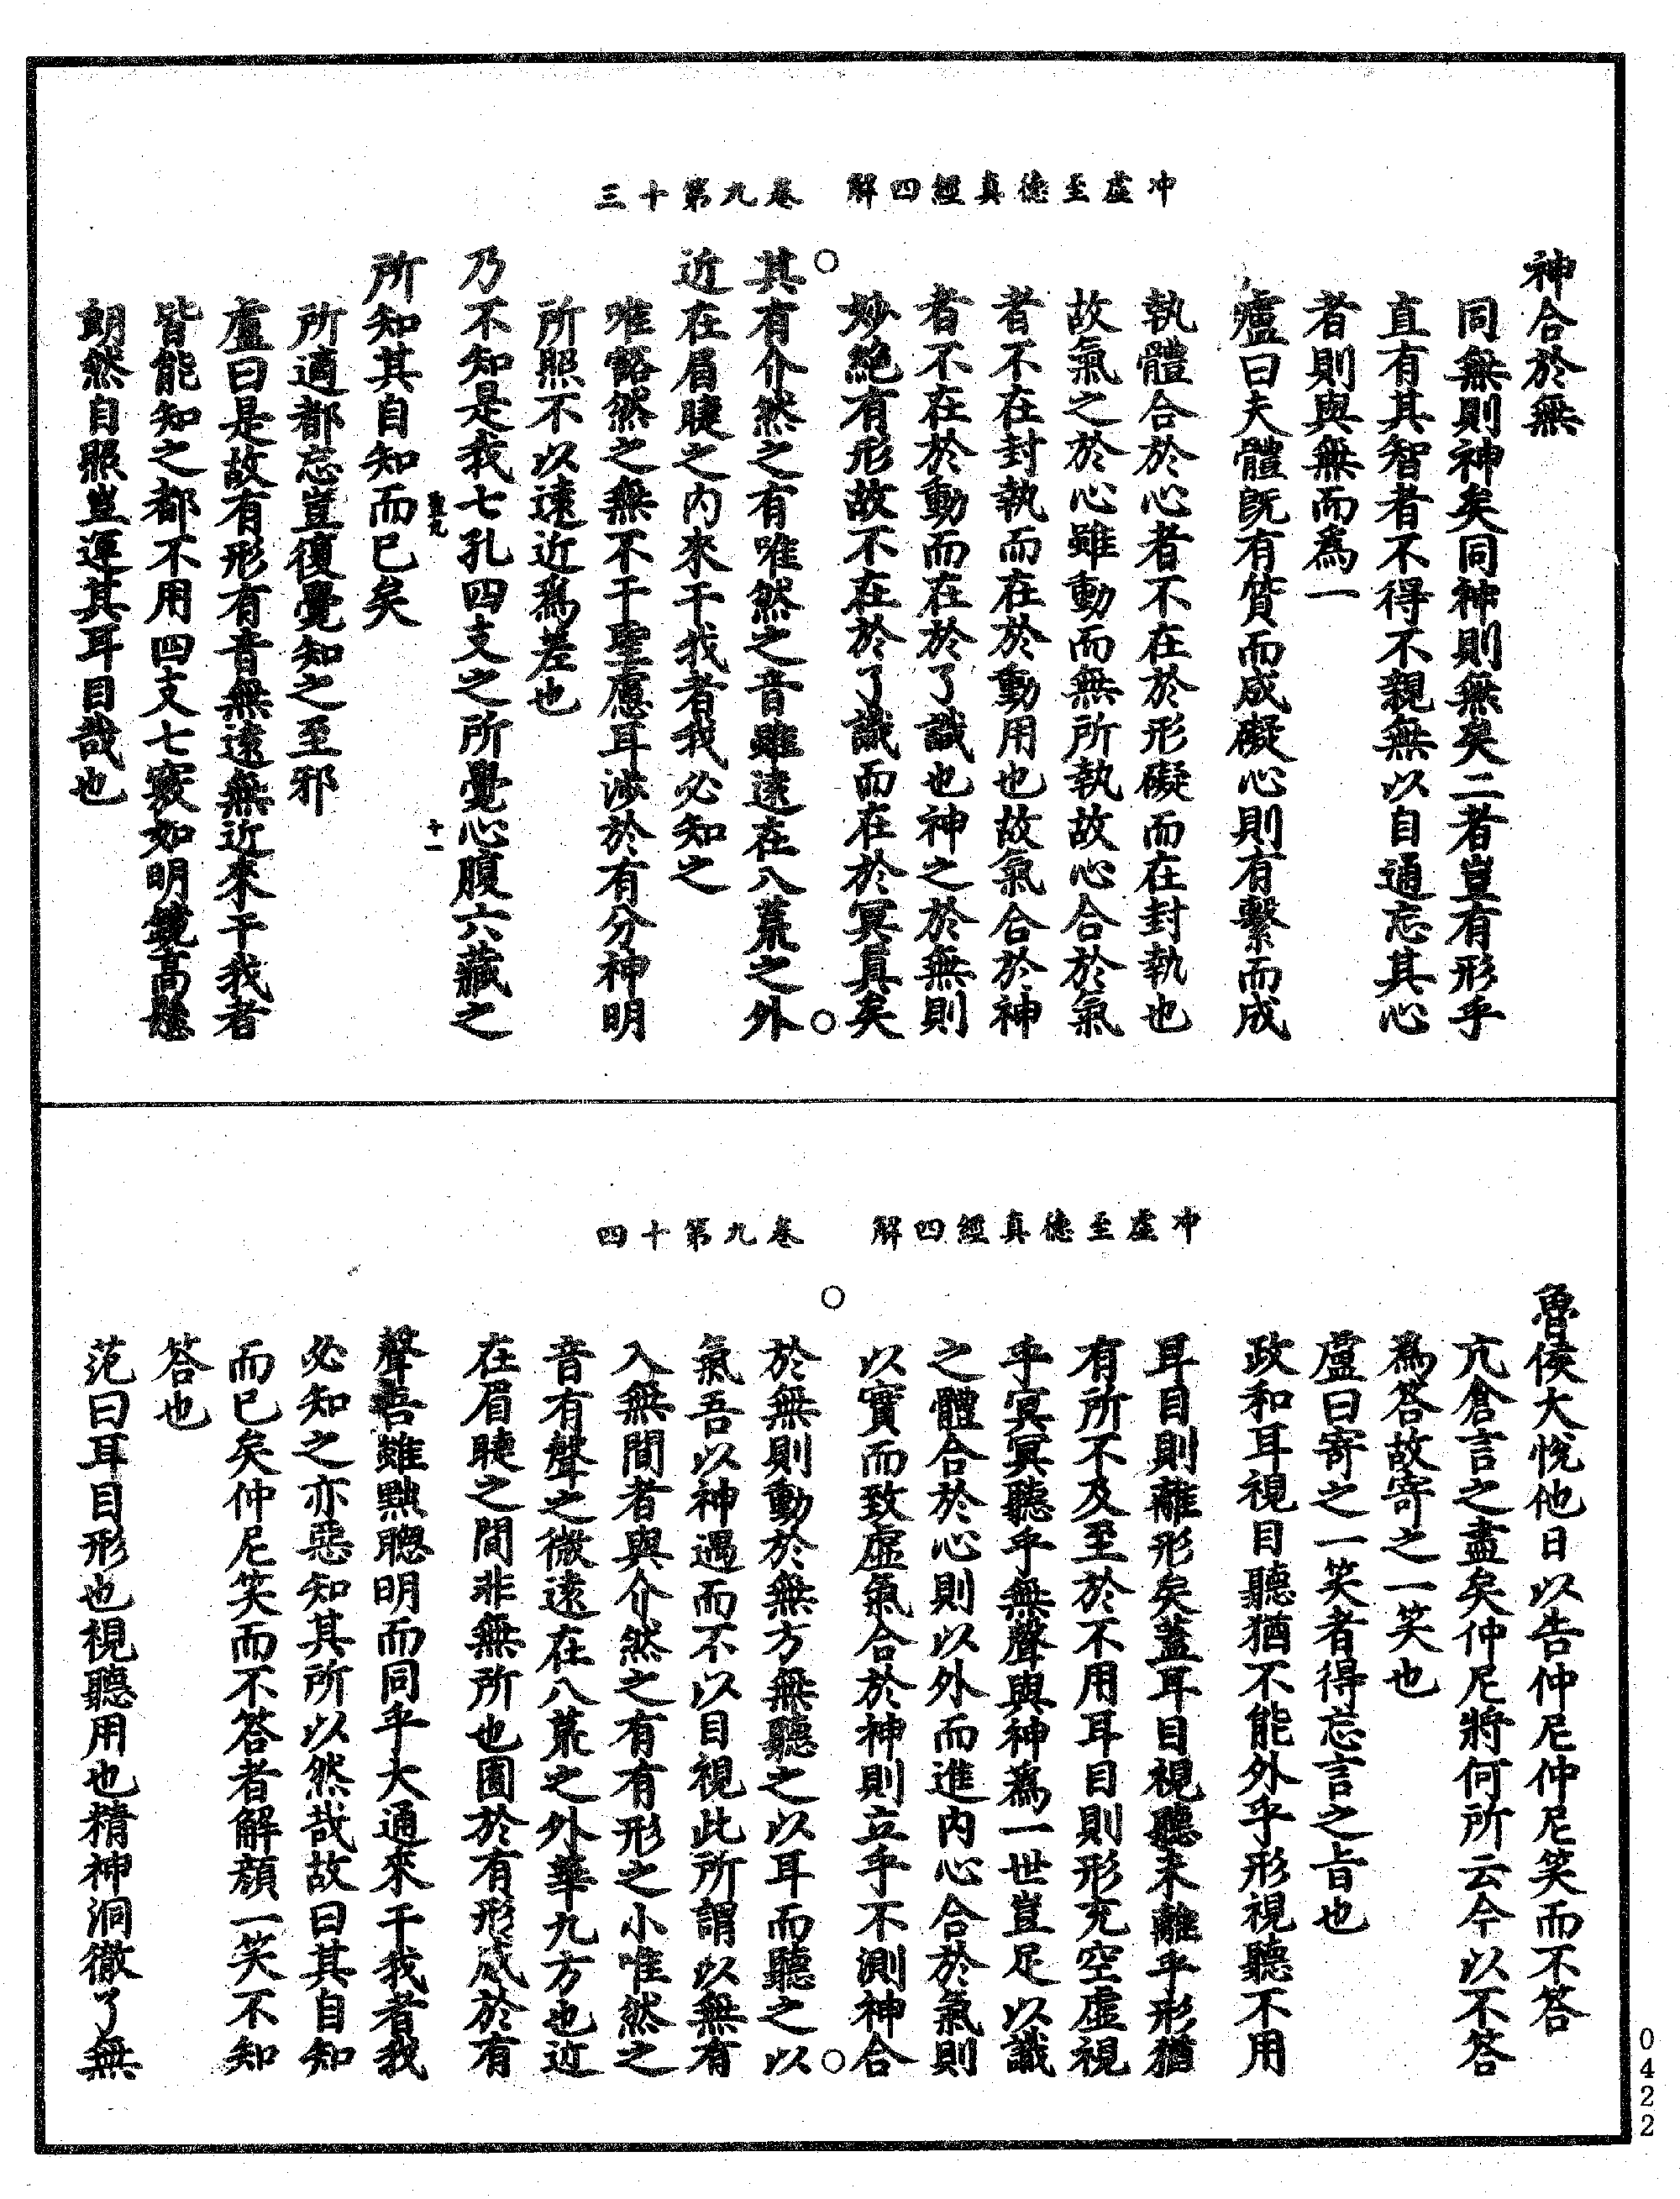 冲虛至德真經四解　卷九第十三
神合於無
同無則神矣同神則無矣二者豈有形乎
直有其智者不得不親無以自通忘其心
者則與無而為一
盧曰夫體既有質而成礙心則有繫而成
執體合於心者不在於形礙而在封執也
故氣之於心雖動而無所執故心合於氣
者不在封執而在於動用也故氣合於神
者不在於動而在於了識也神之於無則
妙絕有形故不在於了識而在於冥真矣
其有介然之有唯然之音雖遠在八荒之外
近在眉睫之內來干我者我必知之
唯豁然之無不干聖慮耳涉於有分神明
所照不以遠近為差也
乃不知是我七孔四支之所覺心腹六藏之
所知其自知而已矣
所適都忘豈復覺知之至邪
盧曰是故有形有音無遠無近來干我者
皆能知之都不用四支七竅如明鏡高懸
朗然自照豈運其耳目哉也
冲虛至德真經四解　卷九第十四
魯侯大悅他日以告仲尼仲尼笑而不答
亢倉言之盡矣仲尼將何所云今以不答
為答故寄之一笑也
盧曰寄之一笑者得忘言之旨也
政和耳視目聽猶不能外乎形視聽不用
耳目則離形矣蓋耳目視聽未離乎形猶
有所不及至於不用耳目則形充空虛視
乎冥冥聽乎無聲與神為一世豈足以識
之體合於心則以外而進內心合於氣則
以實而致虛氣合於神則立乎不測神合
於無則動於無方無聽之以耳而聽之以
氣吾以神遇而不以目視此所謂以無有
入無間者與介然之有有形之小唯然之
音有聲之微遠在八荒之外華九方也近
在眉睫之間非無所也囿於有形感於有
聲吾雖黜聰明而同乎大通來干我者我
必知之亦惡知其所以然哉故曰其自知
而已矣仲尼笑而不答者解顏一笑不知
答也
范曰耳目形也視聽用也精神洞徹了無
0422